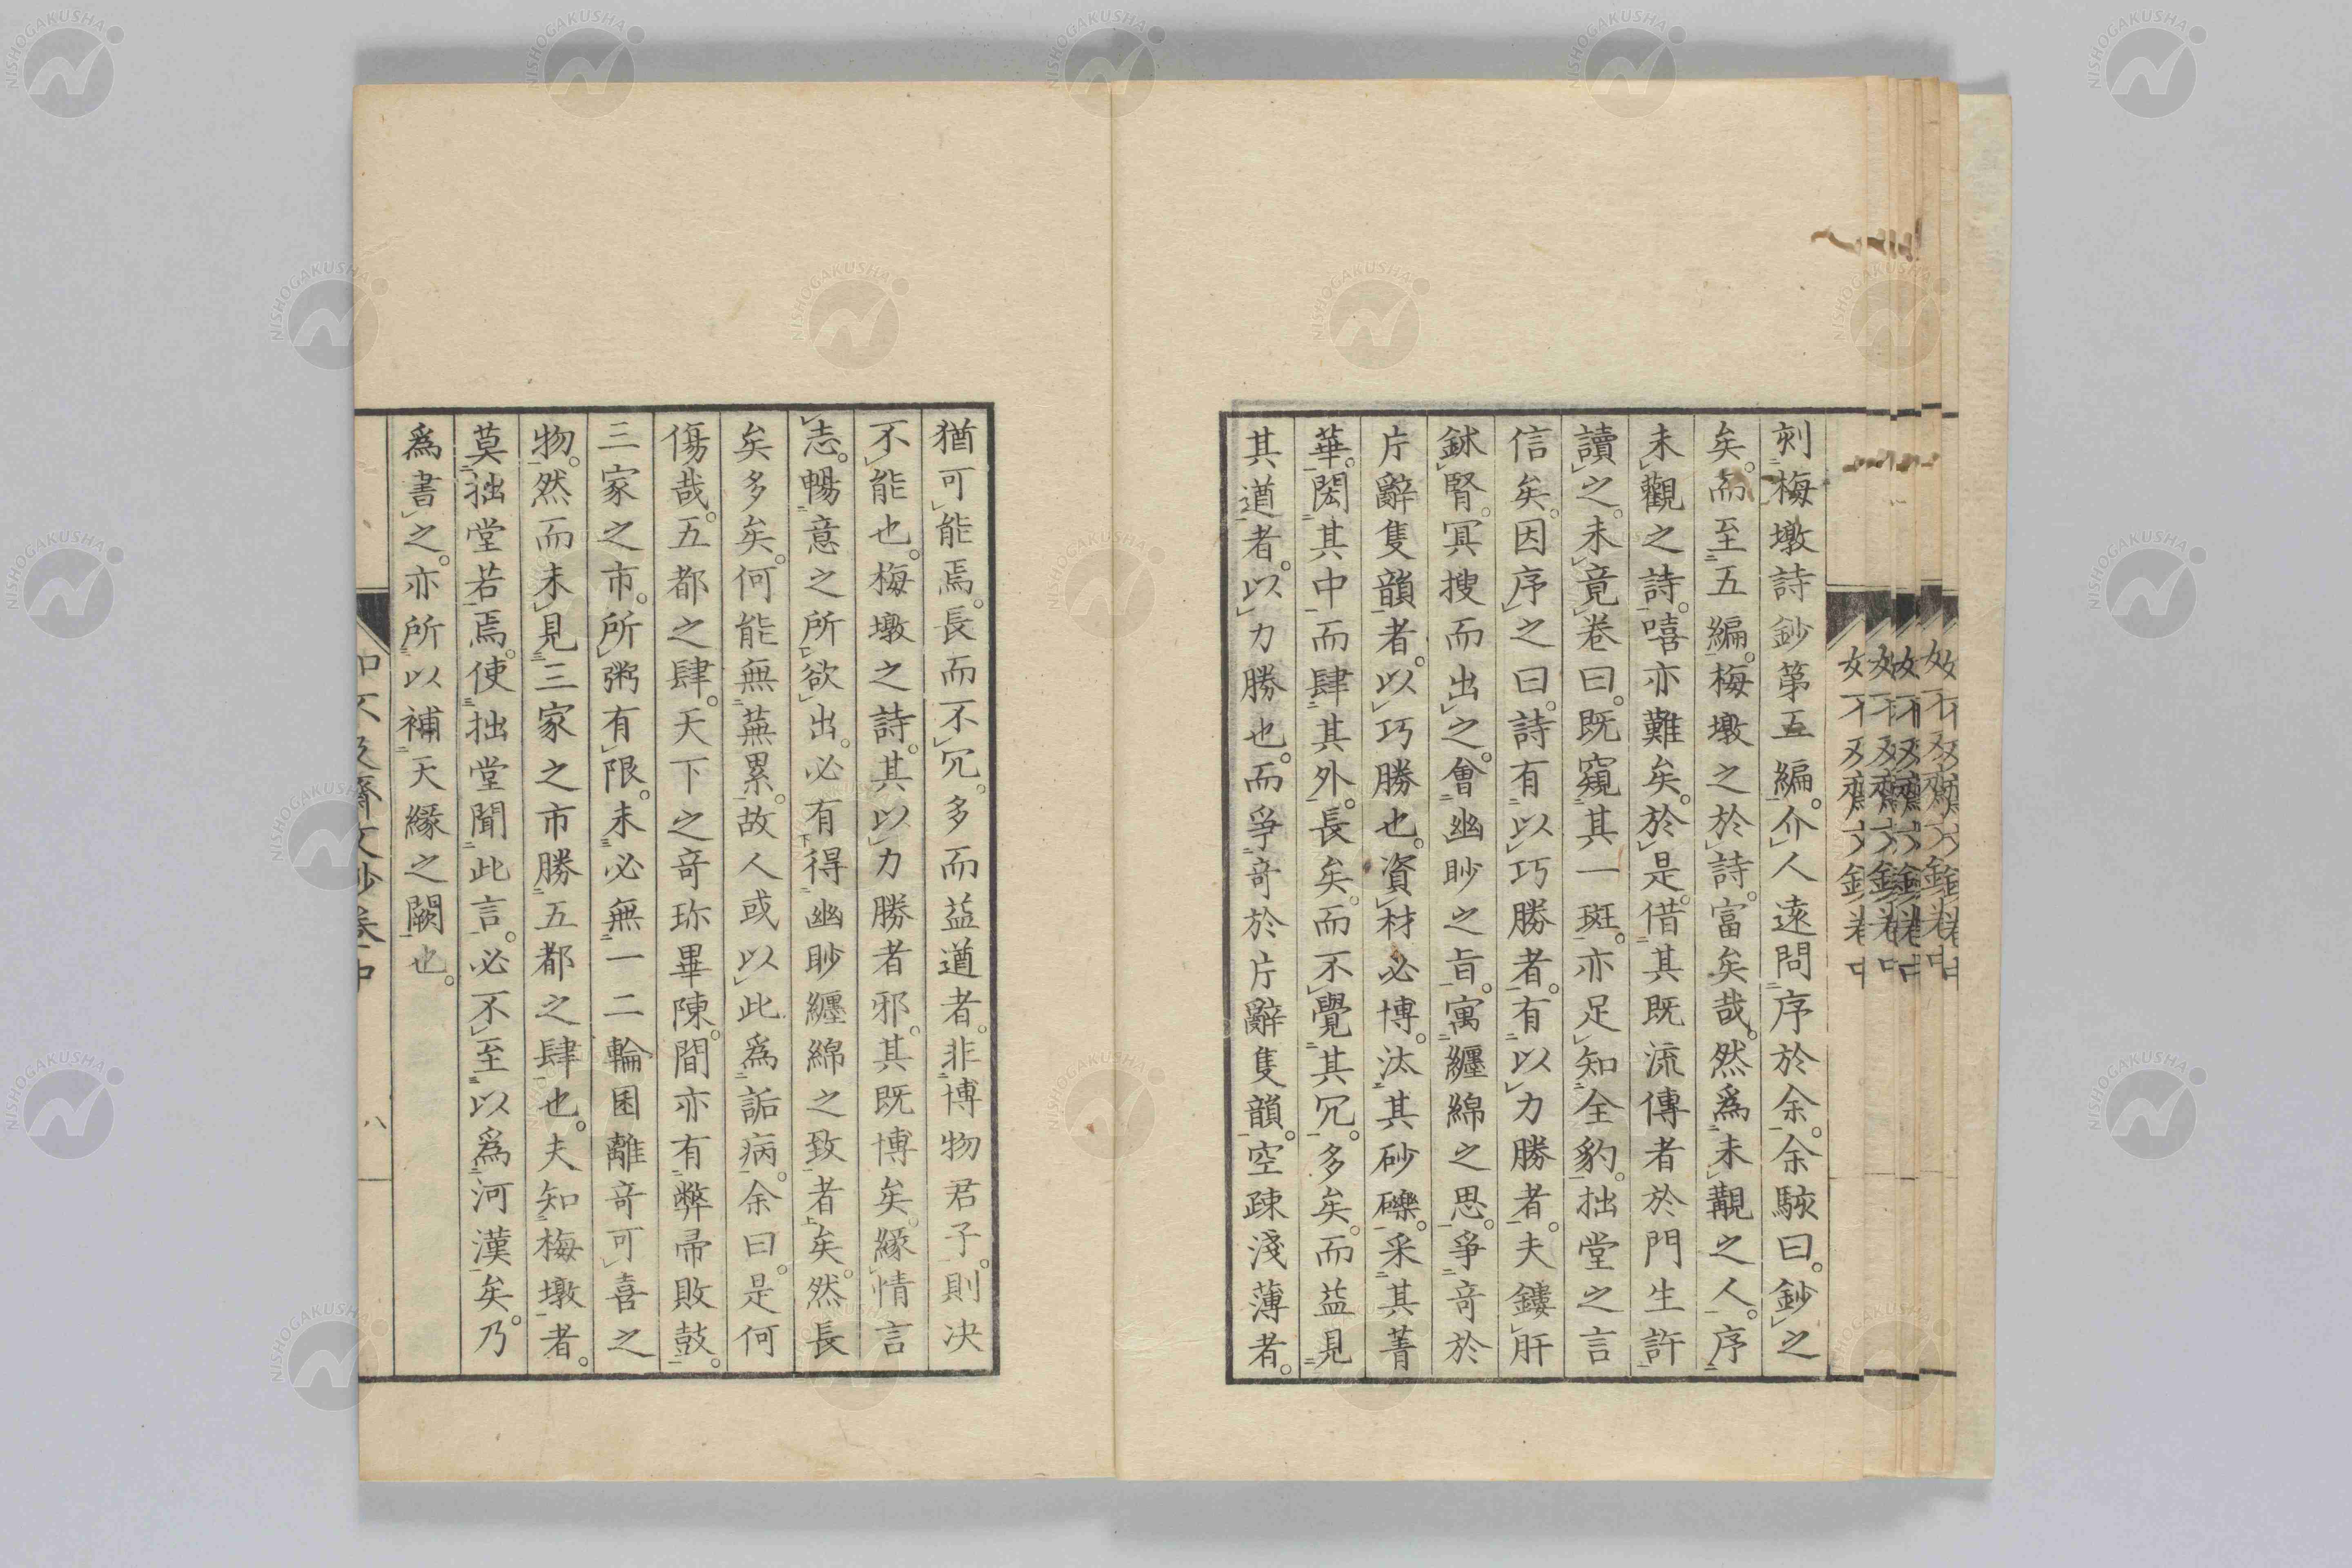 刻梅墩詩鈔第五編。介人遠問序於余。余駭曰。鈔之
矣。而至五編。梅墩之於詩。富矣哉。然為未覩之人。序
未觀之詩。嘻亦難矣。於是。借其既流傳者於門生許
讀之。未竟卷曰。既窺其一斑。亦足知全豹。拙堂之言
信矣。因序之曰。詩有以巧勝者。有以力勝者。夫鏤肝
鉥腎。冥搜而出之。會幽眇之旨。寓纏綿之思。爭奇於
片辭隻韻者。以巧勝也。資材必博。汰其砂礫。采其菁
華。閎其中而肆其外。長矣。而不覺其冗。多矣。而益見
其遒者。以力勝也。而爭奇於片辭隻韻。空疎淺薄者。
猶可能焉。長而不冗。多而益遒者。非博物君子。則决
不能也。梅墩之詩。其以力勝者邪。其既博矣。緣情言
志。暢意之所欲出。必有得幽眇纏綿之致者矣。然長
矣多矣。何能無蕪累。故人或以此為詬病。余曰。是何
傷哉。五都之肆。天下之奇珎畢陳。間亦有弊帚敗鼓。
三家之市。所粥有限。未必無一二輪囷離奇可喜之
物。然而未見三家之市勝五都之肆也。夫知梅墩者。
莫拙堂若焉。使拙堂聞此言。必不至以為河漢矣。乃
為書之。亦所以補天緣之闕也。
八
NISHOGAKUSHA